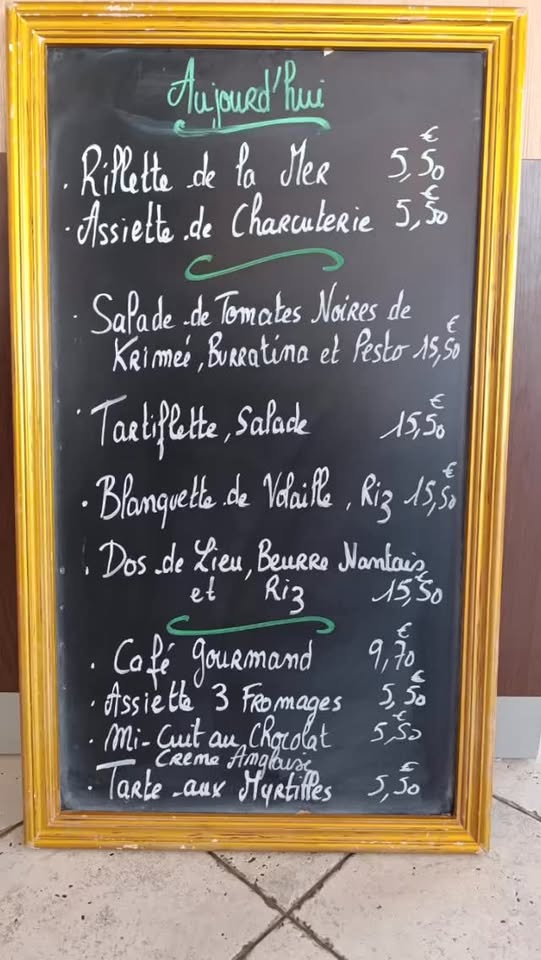 Aujourd'hui
· Rillette de la Mer 5,50 €
· Assiette de Charcuterie 5,50 €
· Salade de Tomates Noires de
Krimeé, Burratina et Pesto 15,50 €
· Tartiflette, Salade 15,50 €
· Blanquette de Volaille, Riz 15,50 €
· Dos de Lieu, Beurre Nantais
et Riz 15,50 €
· Café gourmand 9,70 €
· Assiette 3 Fromages 5,50 €
· Mi-Cuit au Chocolat 5,50 €
Crème Anglaise
· Tarte aux Myrtilles 5,50 €